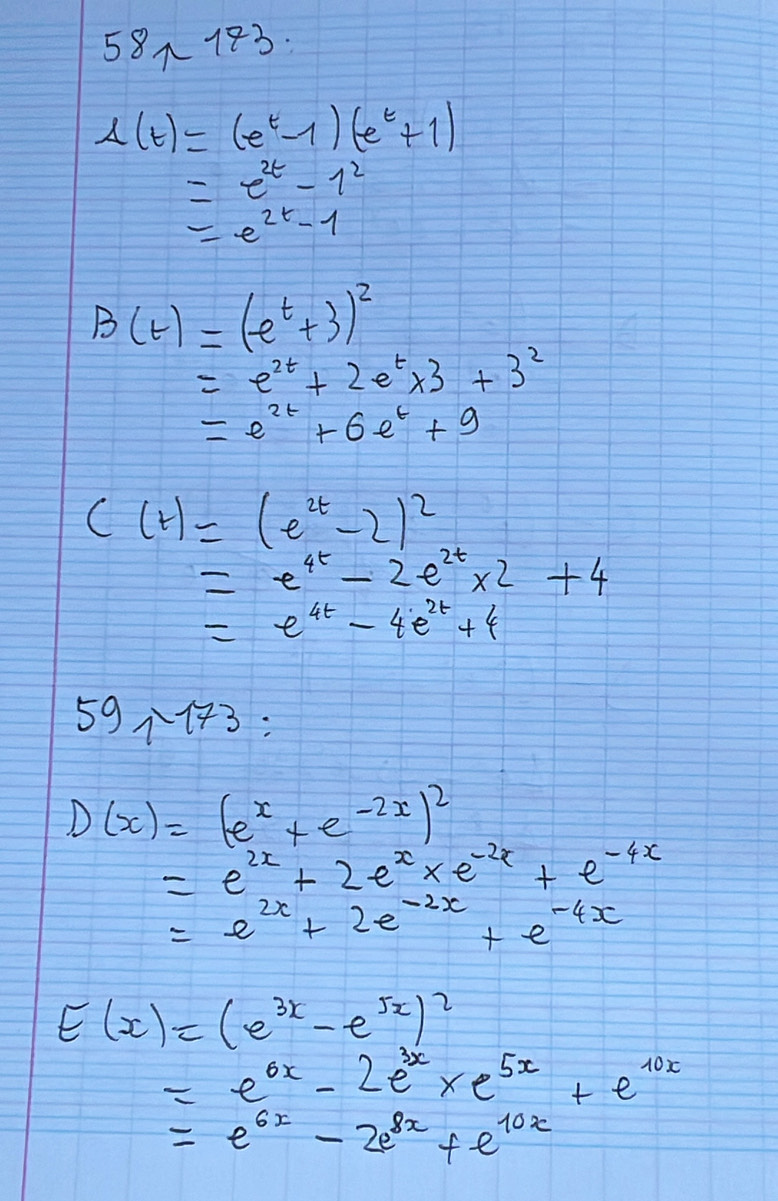 58 p 173 :
A(t) = (e^t - 1)(e^t + 1)
= e^{2t} - 1^2
= e^{2t} - 1
B(t) = (e^t + 3)^2
= e^{2t} + 2e^t × 3 + 3^2
= e^{2t} + 6e^t + 9
C(t) = (e^{2t} - 2)^2
= e^{4t} - 2e^{2t} × 2 + 4
= e^{4t} - 4e^{2t} + 4
59 p 173 :
D(x) = (e^x + e^{-2x})^2
= e^{2x} + 2e^x × e^{-2x} + e^{-4x}
= e^{2x} + 2e^{-2x} + e^{-4x}
E(x) = (e^{3x} - e^{5x})^2
= e^{6x} - 2e^{3x} × e^{5x} + e^{10x}
= e^{6x} - 2e^{8x} + e^{10x}